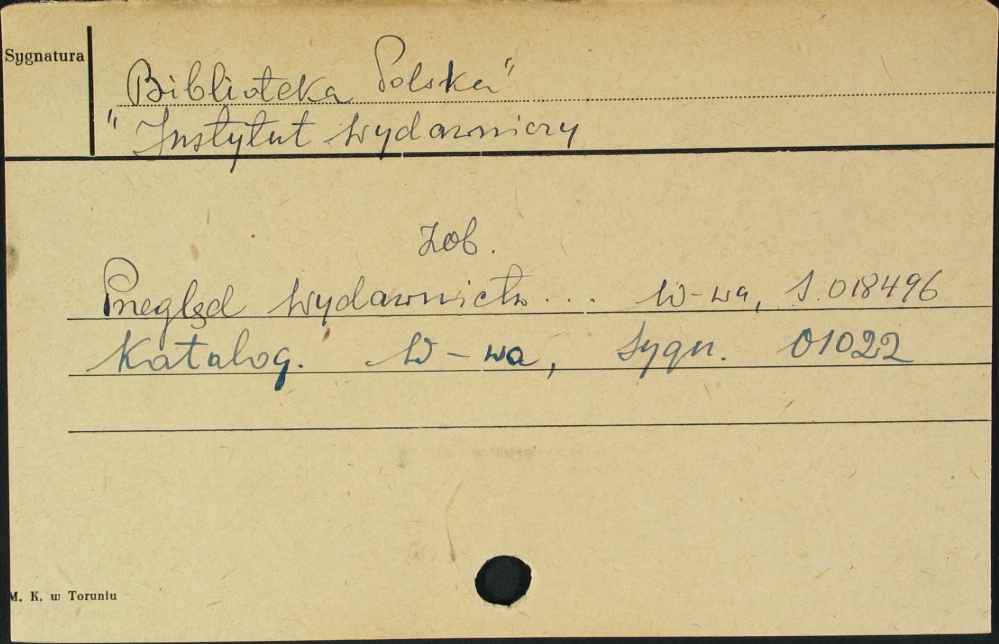 Sygnatura
Biblioteka Polska"
" Instytut Wydawniczy
Zob.
Przegląd Wydawnictw... W-wa, S.018496
Katalog. W-wa, Sygn. 01022
M. K. w Toruniu